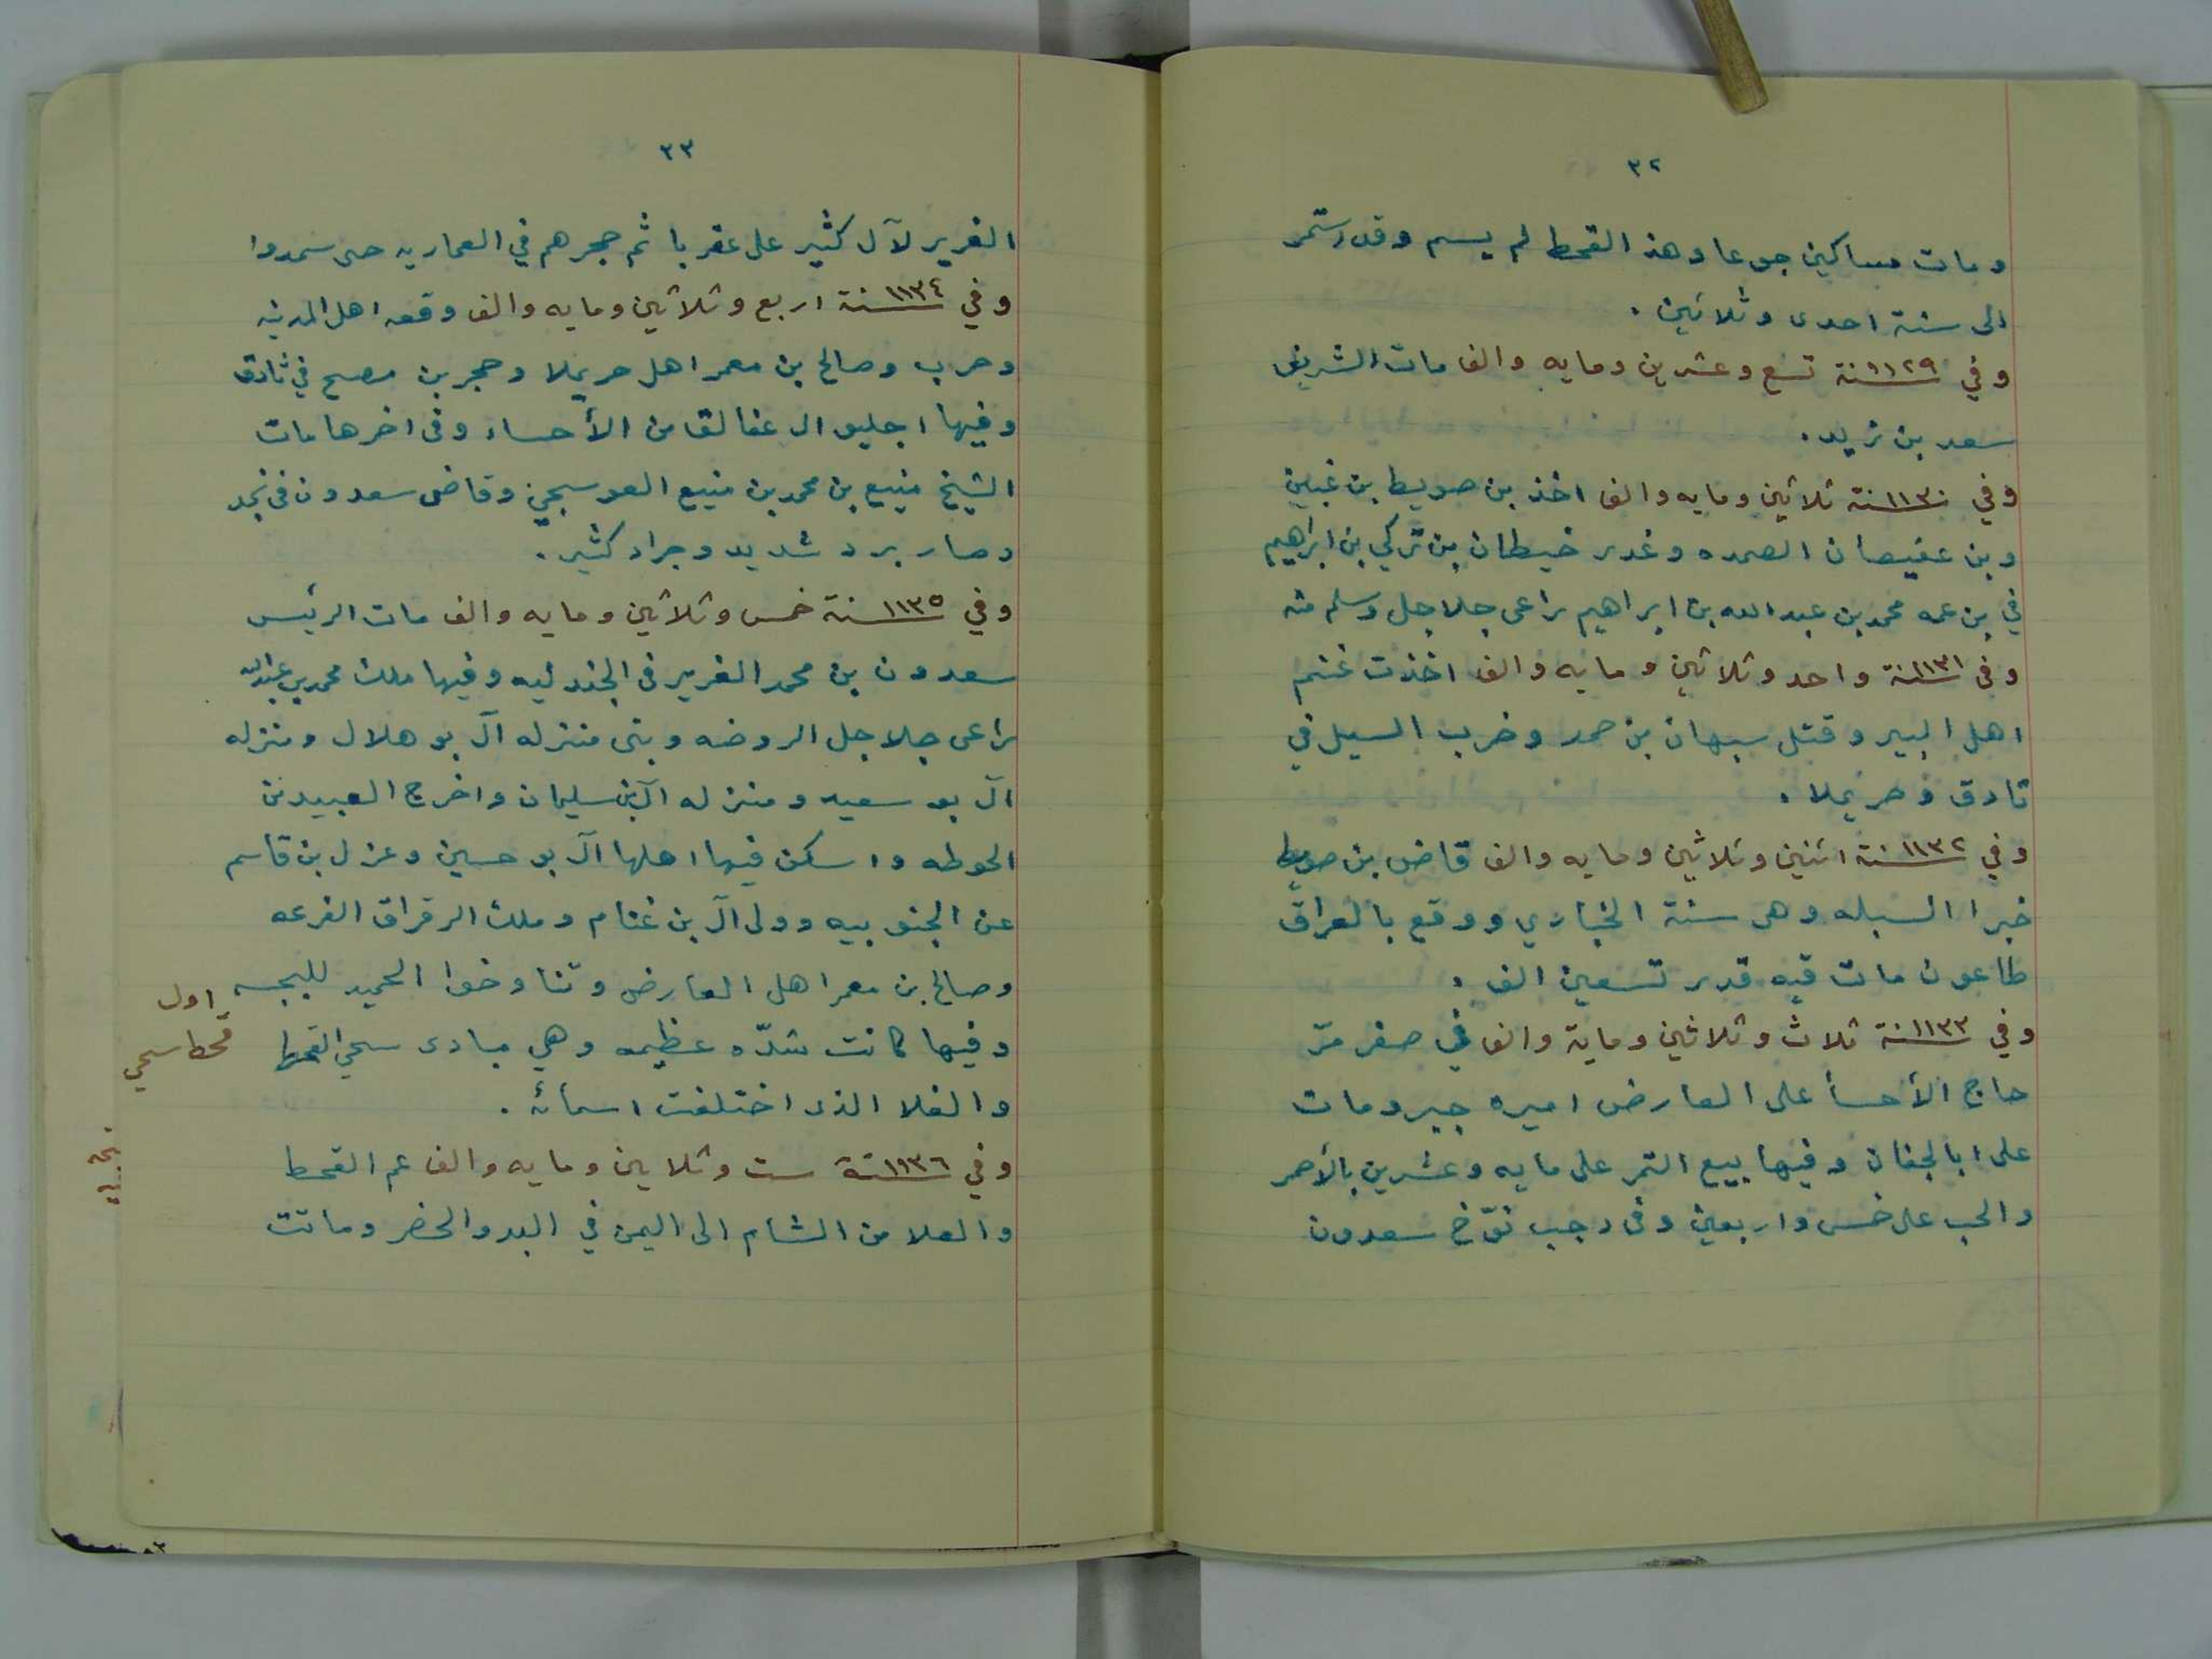 ٣٢
ومات مساكين جوعا وهذ القحط لم يسم وقد استمر
الى سنة احدى وثلاثين .
وفي ١١٢٩سنة تسع وعشرين ومايه والف مات الشريف
سعد بن زيد .
وفي ١١٣٠سنة ثلاثين ومايه والف اخذ بن صويط بن غبين
وبن عفيصان الصمده وغدر خيطان بن تركي بن ابراهيم
في بن عمه محمد بن عبدالله بن ابراهيم راعى جلاجل وسلم منه
وفى ١١٣١سنة واحد وثلاثين ومايه والف اخذت غنم
اهل البير وقتل سبهان بن حمد وخرب السيل في
ثادق وحريملا .
وفي ١١٣٢سنة اثنين وثلاثين ومايه والف قاض بن صويط
خبرا السبله وهى سنة الخباري ووقع بالعراق
طاعون مات فيه قدر تسعين الف .
وفي ١١٣٣سنة ثلاث وثلاثين وماية والف في صفر مرّ
حاج الأحسأ على العارض اميره جبر ومات
على ابا لجفان وفيها بيع التمر على مايه وعشرين بالأحمر
والحب على خمس واربعين وفى رجب نوّخ سعدون
٣٣
الغرير لآل كثير على عقربا ثم حجرهم في العماريه حتى سمدوا
وفي ١١٣٤سنة اربع وثلاثين ومايه والف وقعه اهل المدينه
وحرب وصالح بن معمر اهل حريملا وحجر بن مصبح في ثادق
وفيها اجليو ال عفالق من الأحساء وفى اخرها مات
الشيخ منيع بن محمد بن منيع العوسجي وقاض سعدون فى نجد
وصار برد شديد وجراد كثير .
وفي ١١٣٥سنة خمس وثلاثين ومايه والف مات الرئيس
سعدون بن محمد الغرير فى الجندليه وفيها ملك محمد بن عبدالله
راعى جلاجل الروضه وبنى منزله آل بو هلال ومنزله
آل بو سعيد ومنزله آل بن سليمان واخرج العبيد من
الحوطه واسكن فيها اهلها آل بو حسين وعزل بن قاسم
عن الجنوبيه وولى آل بن غنام وملك الرقراق الفرعه
وصالح بن معمر اهل العارض وتناوخوا الحميد للبجسه
وفيها كانت شدّه عظيمه وهي مبادى سحي القحط
والغلا الذى اختلفت اسمائه .
وفي ١١٣٦سنة ست وثلاثين ومايه والف عم القحط
والغلا من الشام الى اليمن في البدو والحضر وماتت
اول
قحط سحي